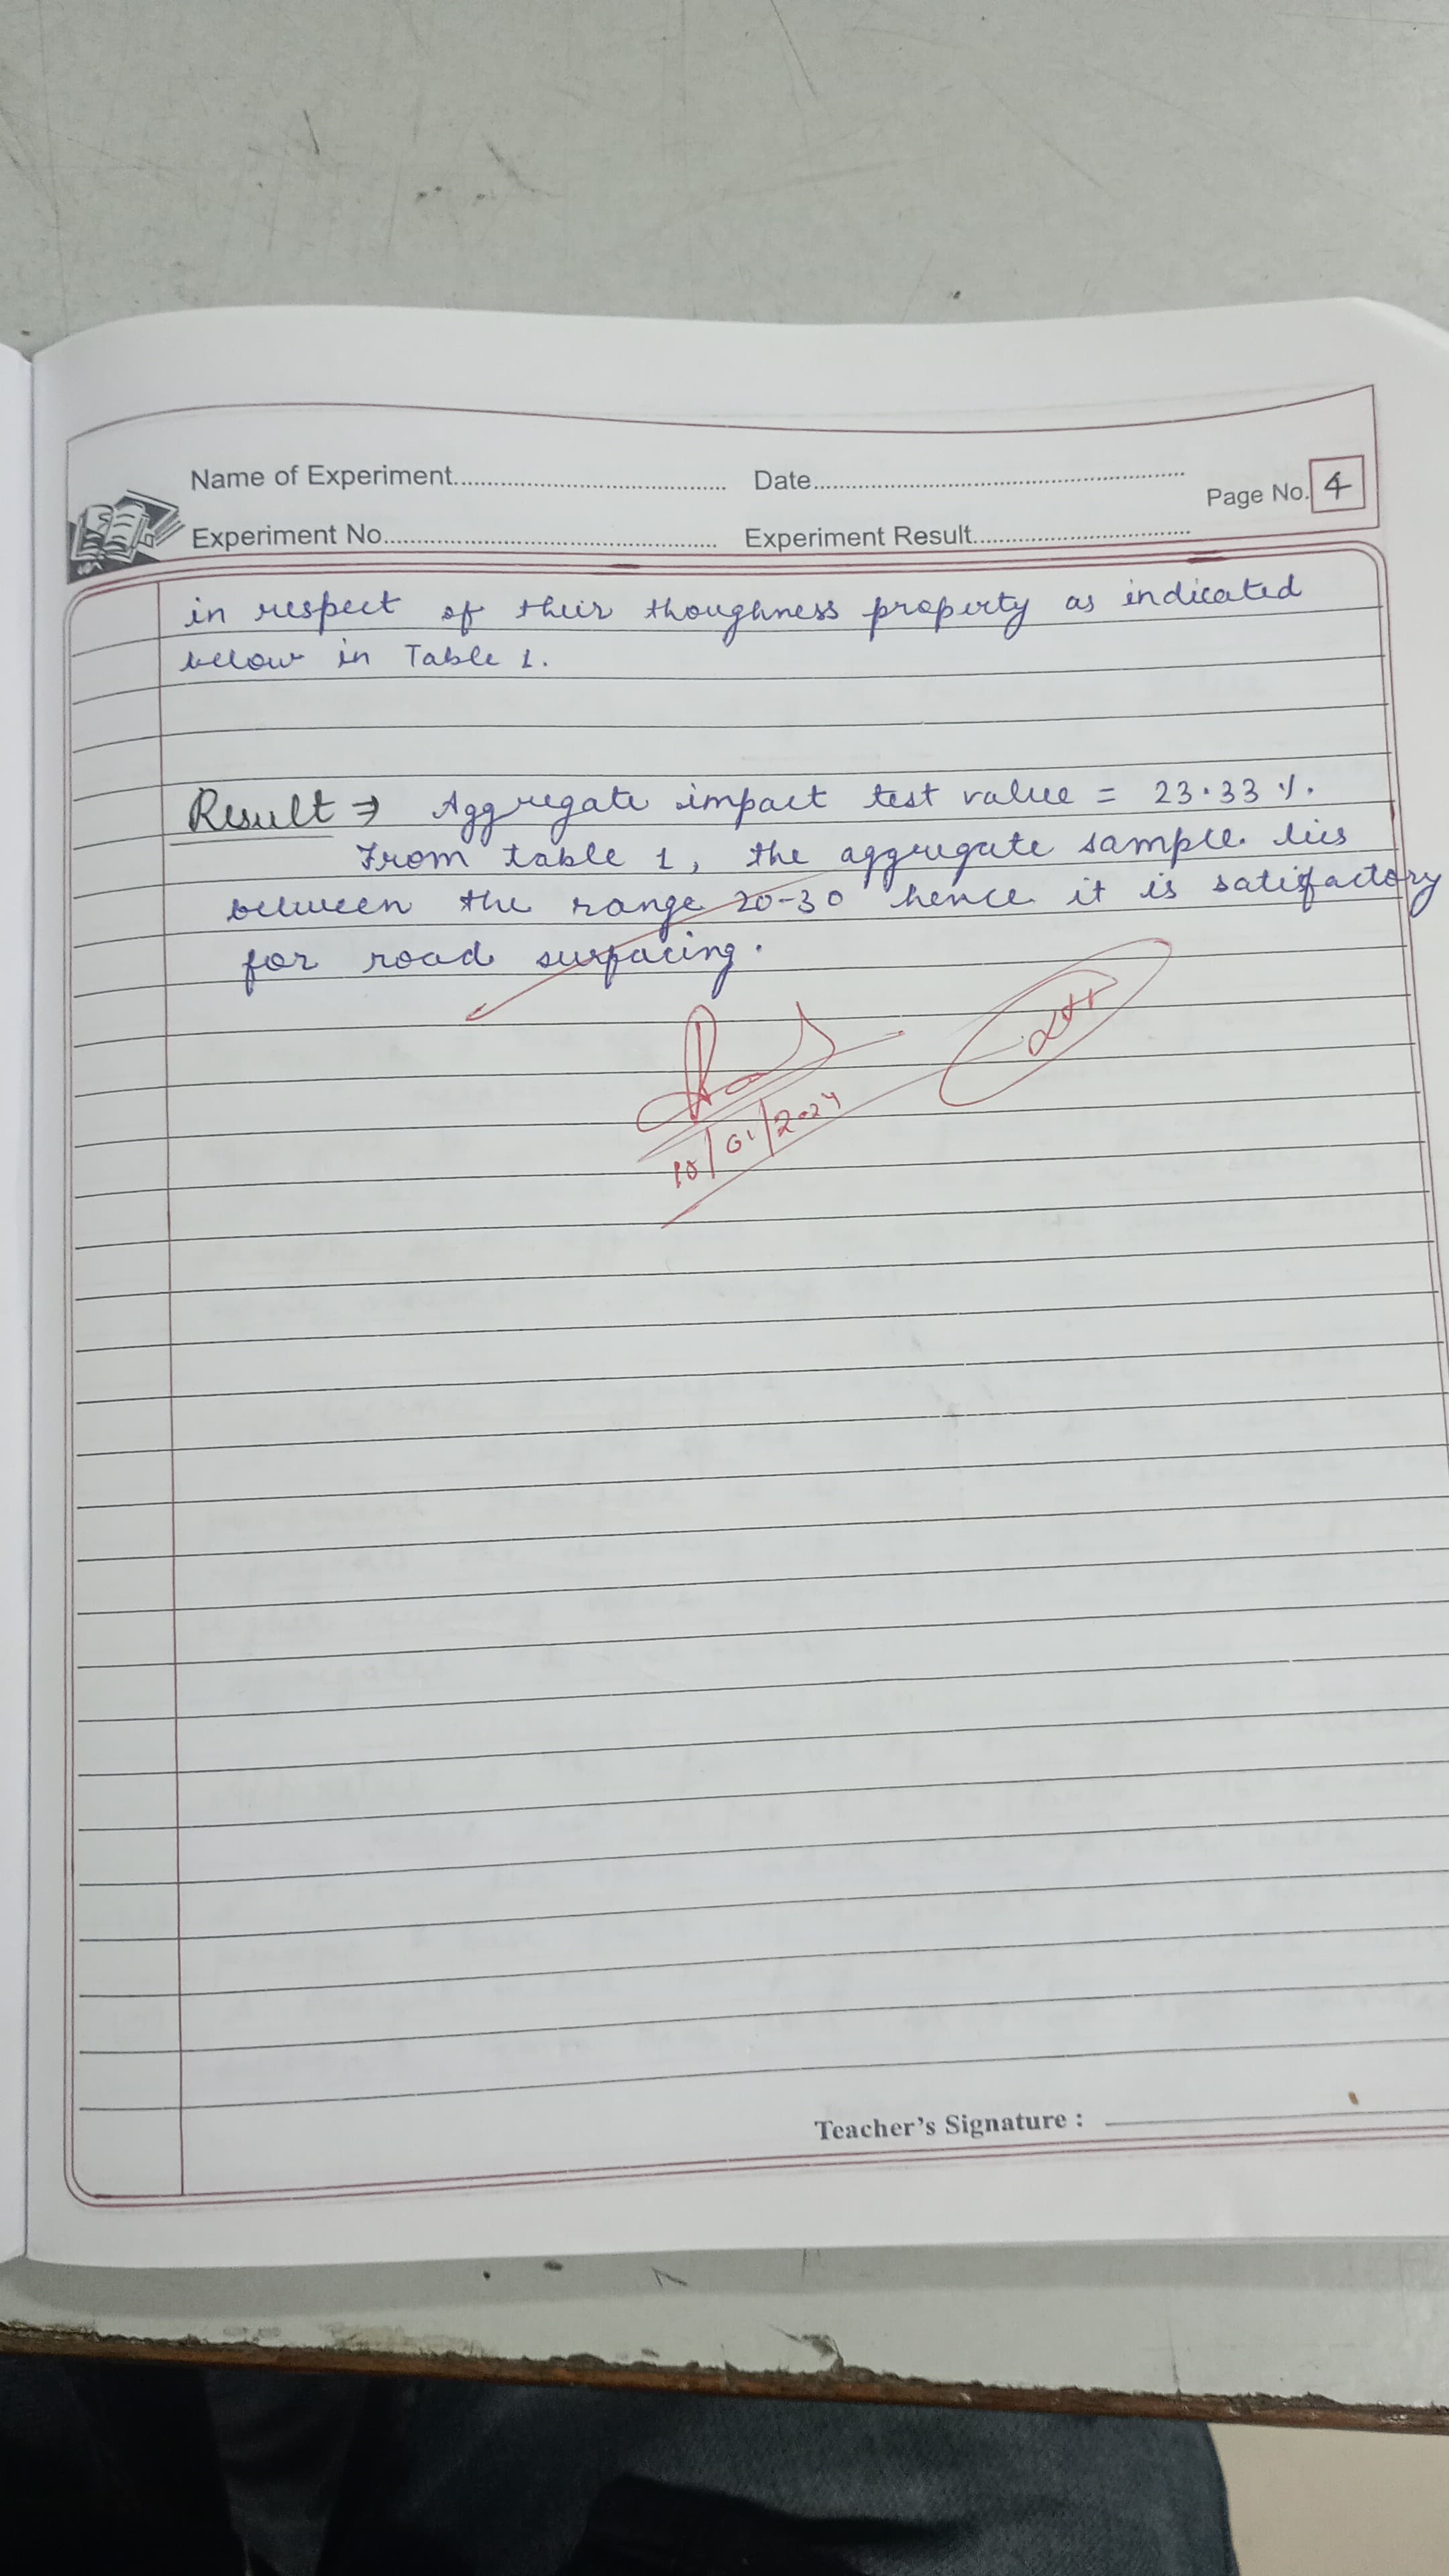 Name of Experiment.......................................... Date..........................................................
Page No. 4
Experiment No.................................................... Experiment Result..................................
in respect of their thoughness property as indicated
below in Table 1.
Result ⇒ Aggregate impact test value = 23.33 %.
From table 1, the aggregate sample lies
between the range 20-30 hence it is satisfactory
for road surfacing.
10/01/2024
Teacher's Signature :